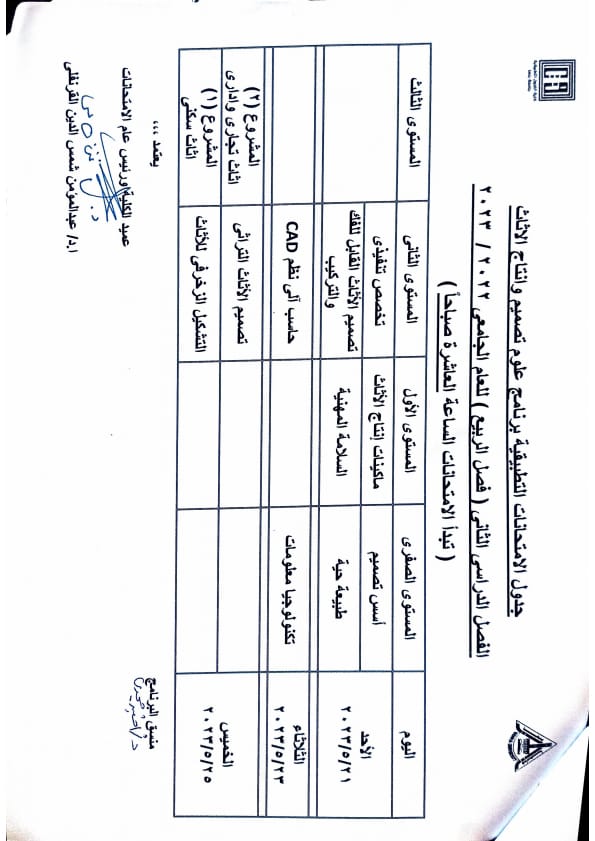 جدول الامتحانات التطبيقية برنامج علوم تصميم وانتاج الاثاث
الفصل الدراسى الثانى ( فصل الربيع ) للعام الجامعى ٢٠٢٢ / ٢٠٢٣
( تبدأ الامتحانات الساعة العاشرة صباحاً )
اليوم المستوى الصفرى المستوى الأول المستوى الثانى المستوى الثالث
الأحد
٢٠٢٣/٥/٢١
أسس تصميم ماكينات إنتاج الأثاث تخصص تنفيذى
طبيعة حية السلامة المهنية تصميم الأثاث القابل للفك
والتركيب
الثلاثاء
٢٠٢٣/٥/٢٣
تكنولوجيا معلومات حاسب آلى نظم CAD
الخميس
٢٠٢٣/٥/٢٥
تصميم الأثاث التراثى المشروع (٢)
اثاث تجارى وادارى
التشكيل الزخرفى للأثاث المشروع (١)
اثاث سكنى
يعتمد ،،،
منسق البرنامج
عميد الكلية ورئيس عام الامتحانات
ا.د/ عبدالمؤمن شمس الدين القرنفلى